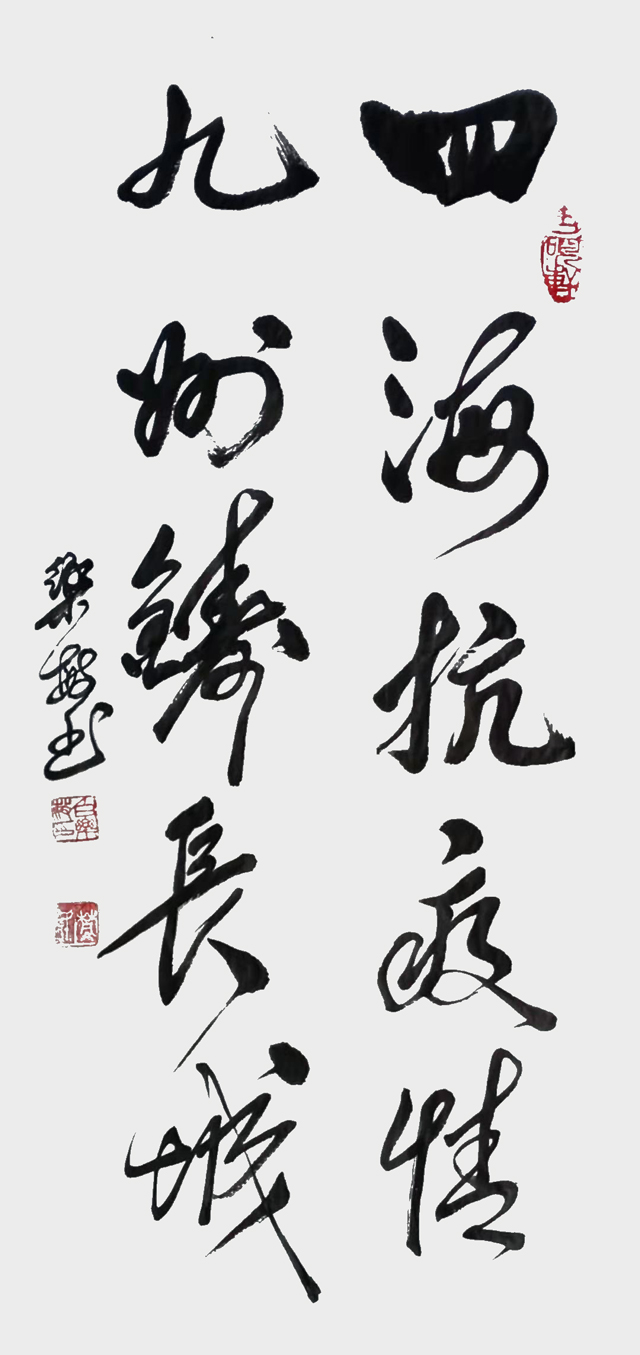 四海抗疫情
九州鑄長城
樂敬書